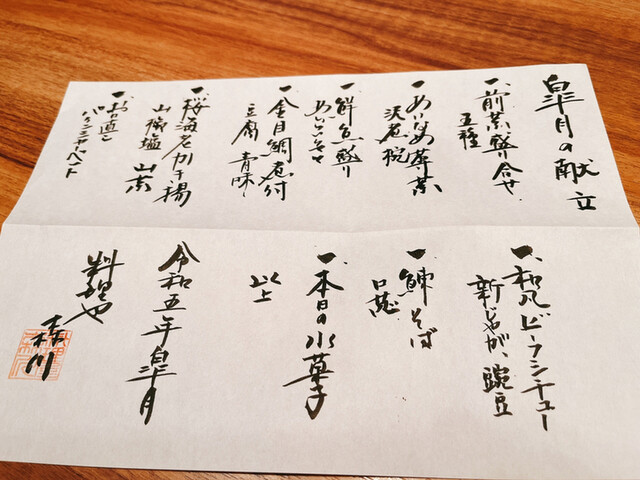 皐月の献立
一、前菜盛り合せ
五種
一、あいなめ葛煮
沢煮椀
一、鮮魚盛り
あしらいもの
一、金目鯛煮付
豆腐 青味
一、桜海老かき揚
山椒塩 山菜
一、お口直し
シャーベット
一、和風ビーフシチュー
新じゃが、豌豆
一、鰊そば
一、本日の水菓子
以上
令和五年皐月
料理や